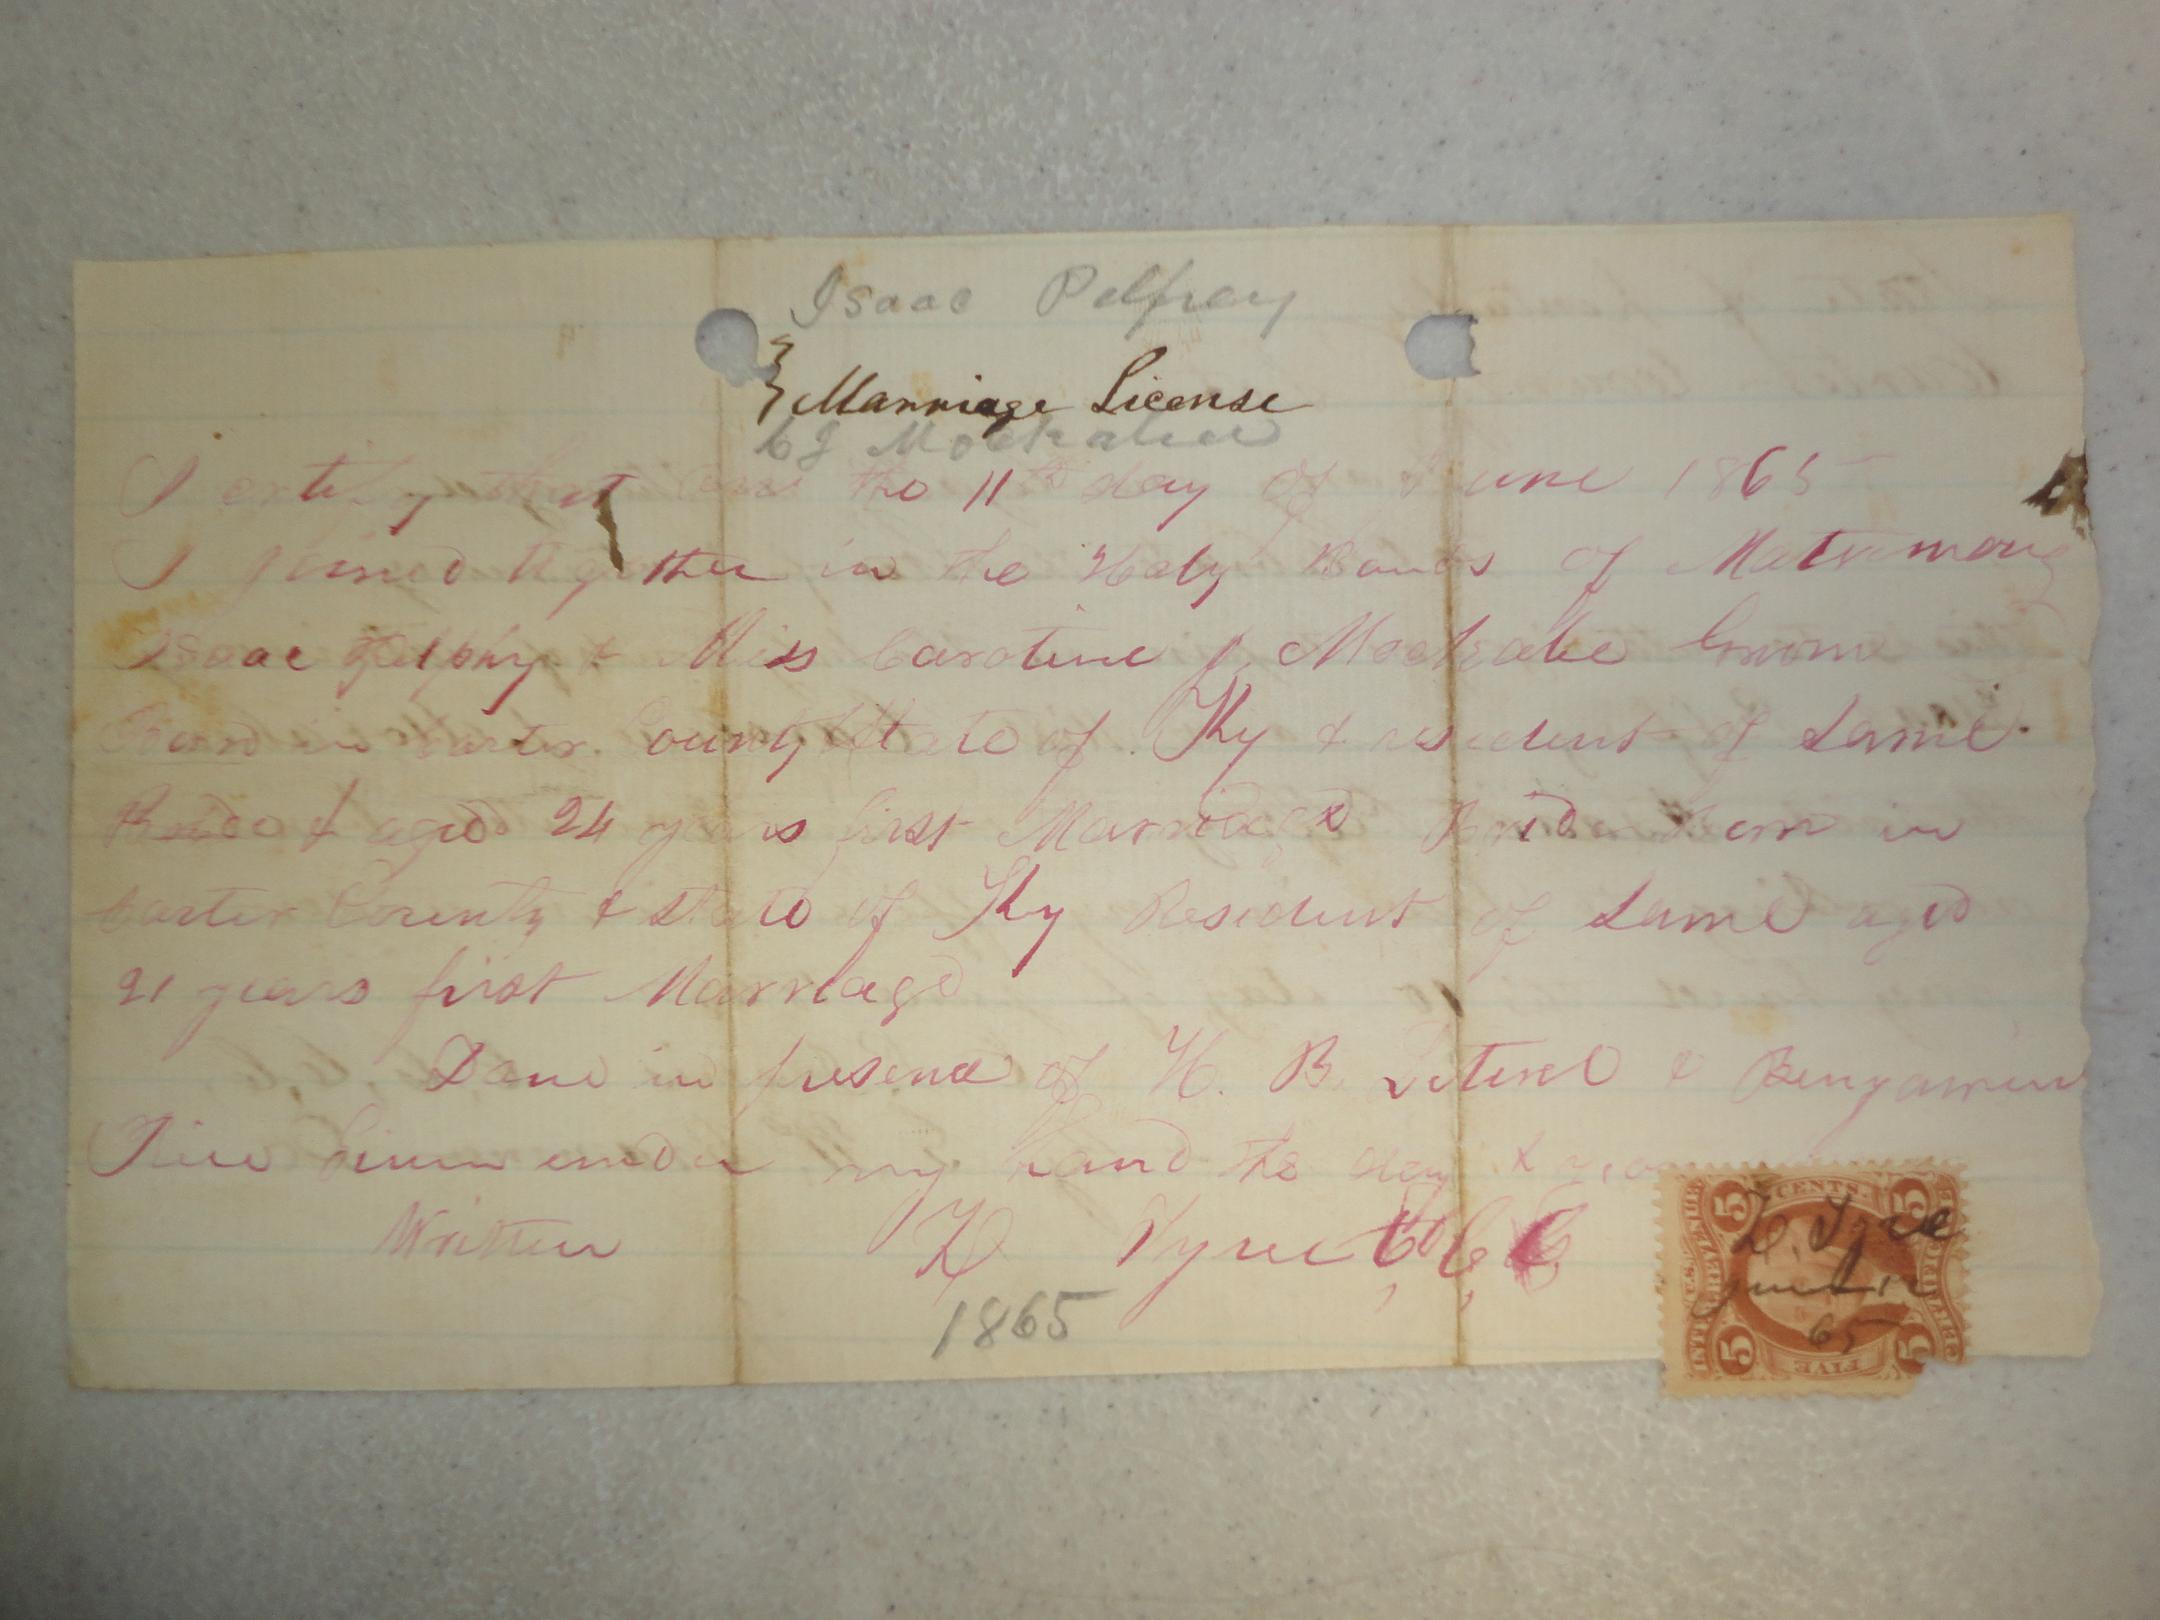 Isaac Pelfrey
Marriage License
C J Mockabee
I certify that on the 11th day of June 1865
I joined together in the Holy Bands of Matrimony
Isaac Pelphy & Miss Caroline J. Mockabe Groom
Born in Carter County & State of Ky & resident of Same
Bride & aged 24 years first Marriage Bride Born in
Carter County & State of Ky Resident of Same aged
21 years first Marriage
Done in presence of H. B. Literel & Benjamin
Rice Given under my hand the day & year
Written Z Tyree C, C, C
1865
U.S. INTER. REVENUE
5 CENTS. 5
Z. Tyree
June 12
65
5 FIVE 5